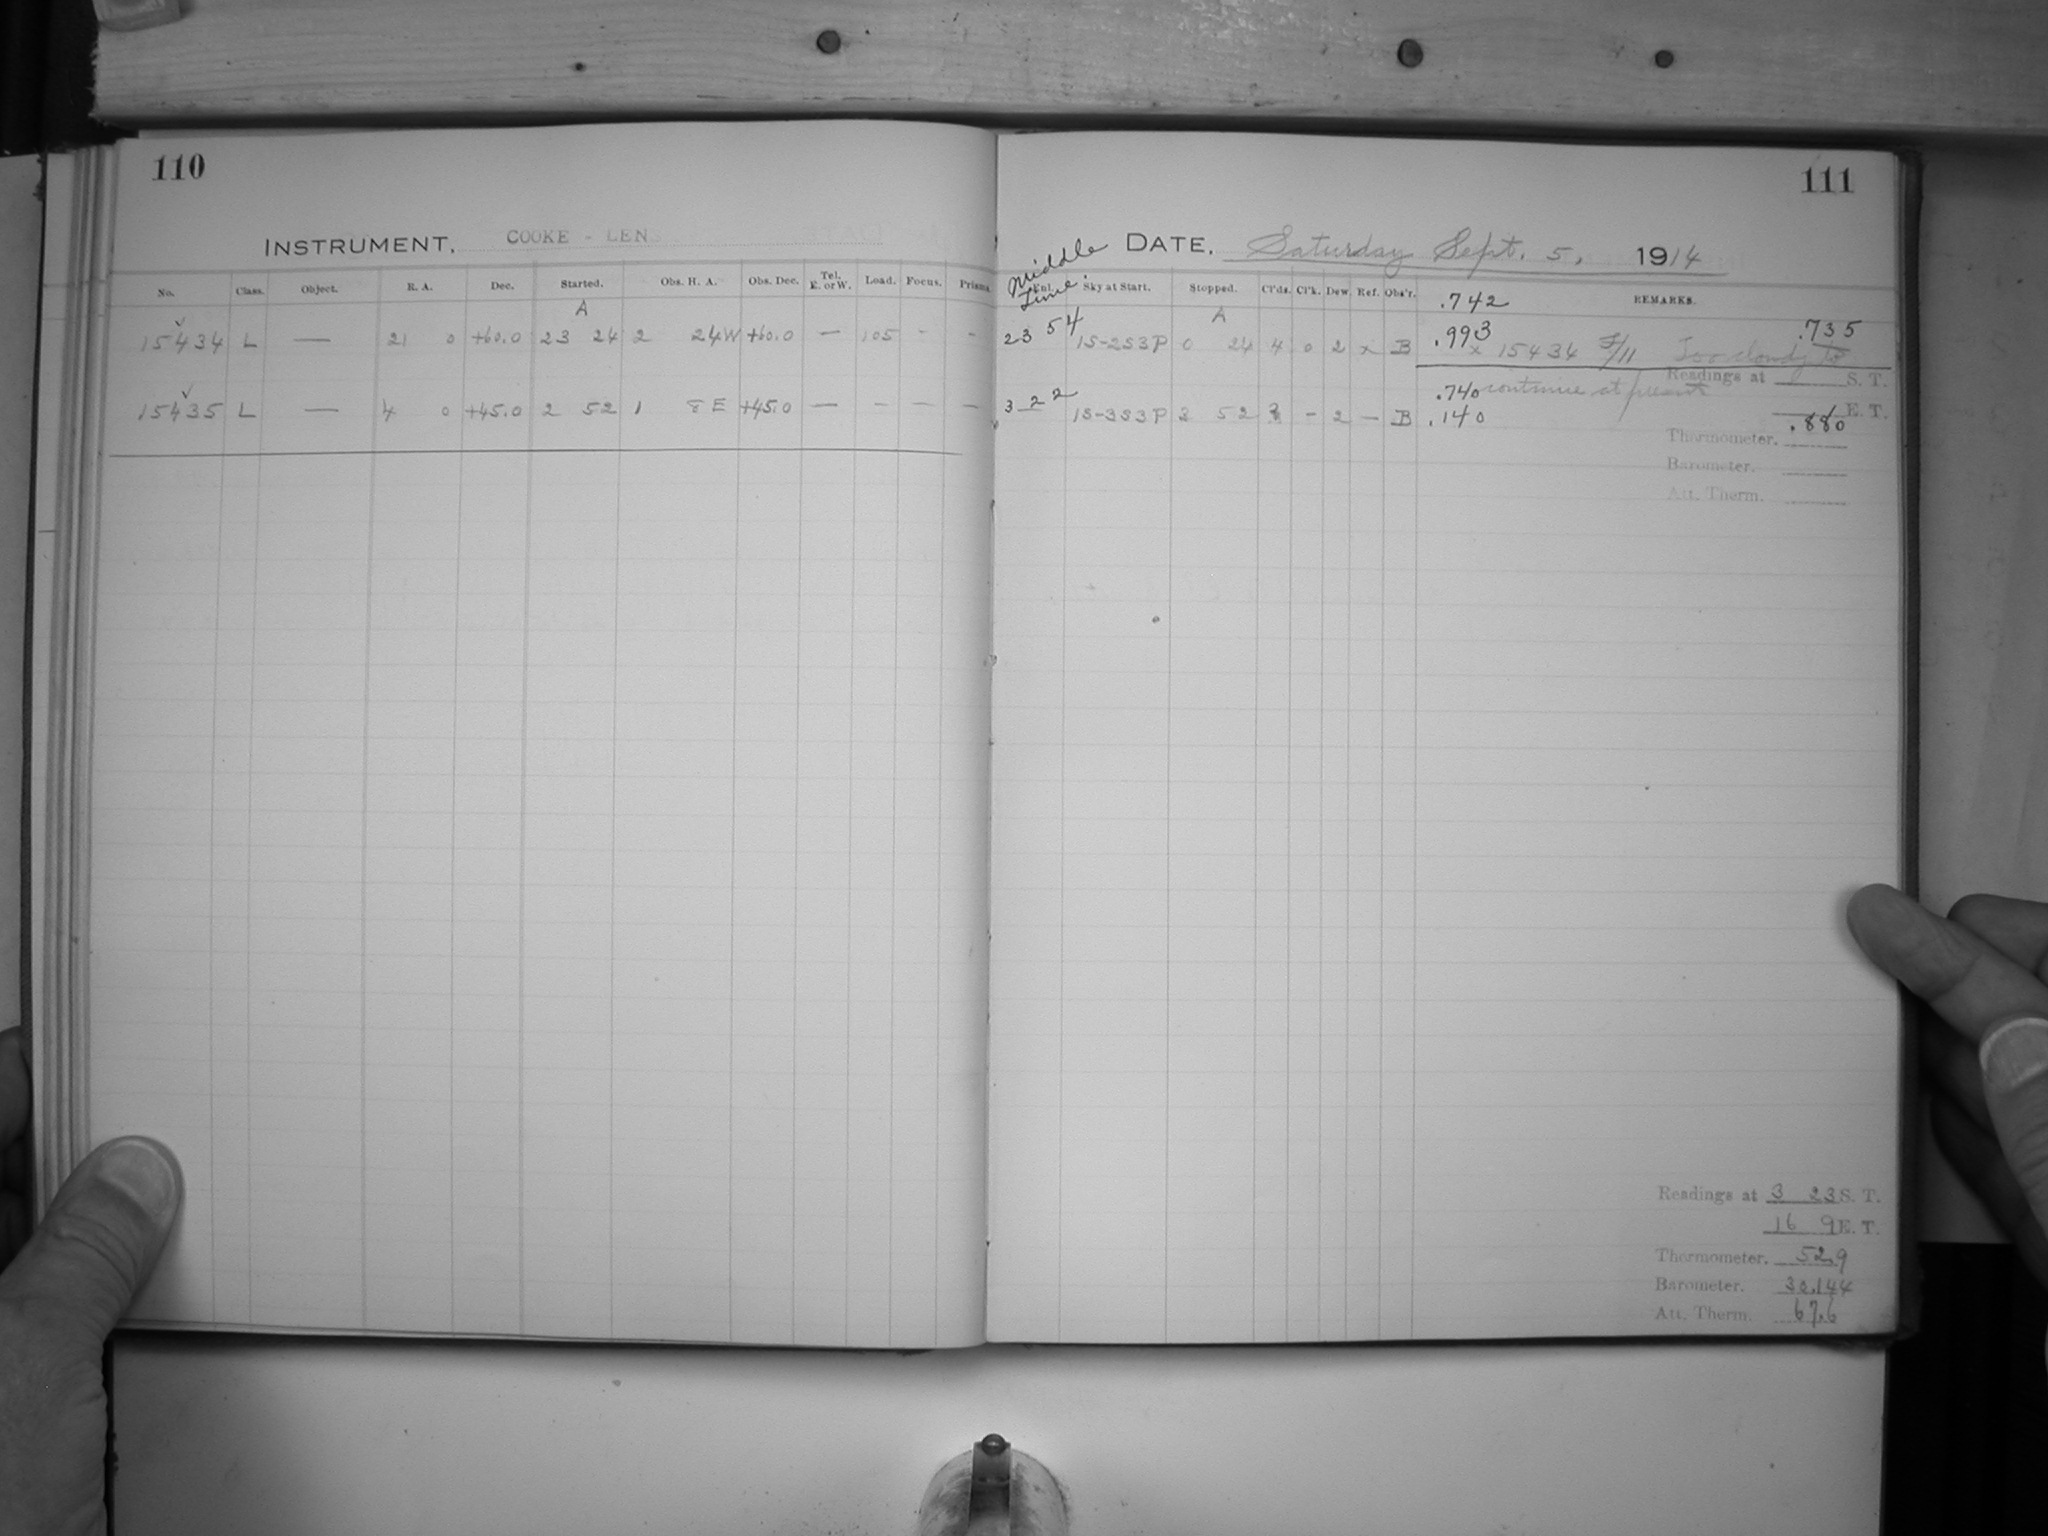 110
INSTRUMENT. COOKE - LENS
No. Class. Object. R. A. Dec. Started. Obs. H. A. Obs. Dec. Tel. E. or W. Load. Focus. Prisms.
A
15434 L — 21 0 +60.0 23 24 2 24W +60.0 — 105 - -
15435 L — 4 0 +45.0 2 52 1 8 E +45.0 — - — —
111
DATE. Saturday Sept. 5, 1914
Middle Time
Sky at Start. Stopped. Cl'ds. Cl'k. Dew. Ref. Obs'r. REMARKS.
.742
A
23 54 1S-2S3P 0 24 4 0 2 x B .993 .735
x 15434 Too cloudy to
Readings at S. T.
.740 continue at present
E. T.
3 22 1S-3S3P 3 52 - 2 — B .140 .880
Thermometer.
Barometer.
Att. Therm.
Readings at 3 23 S. T.
16 9 E. T.
Thermometer. 52.9
Barometer. 30.144
Att. Therm. 67.6